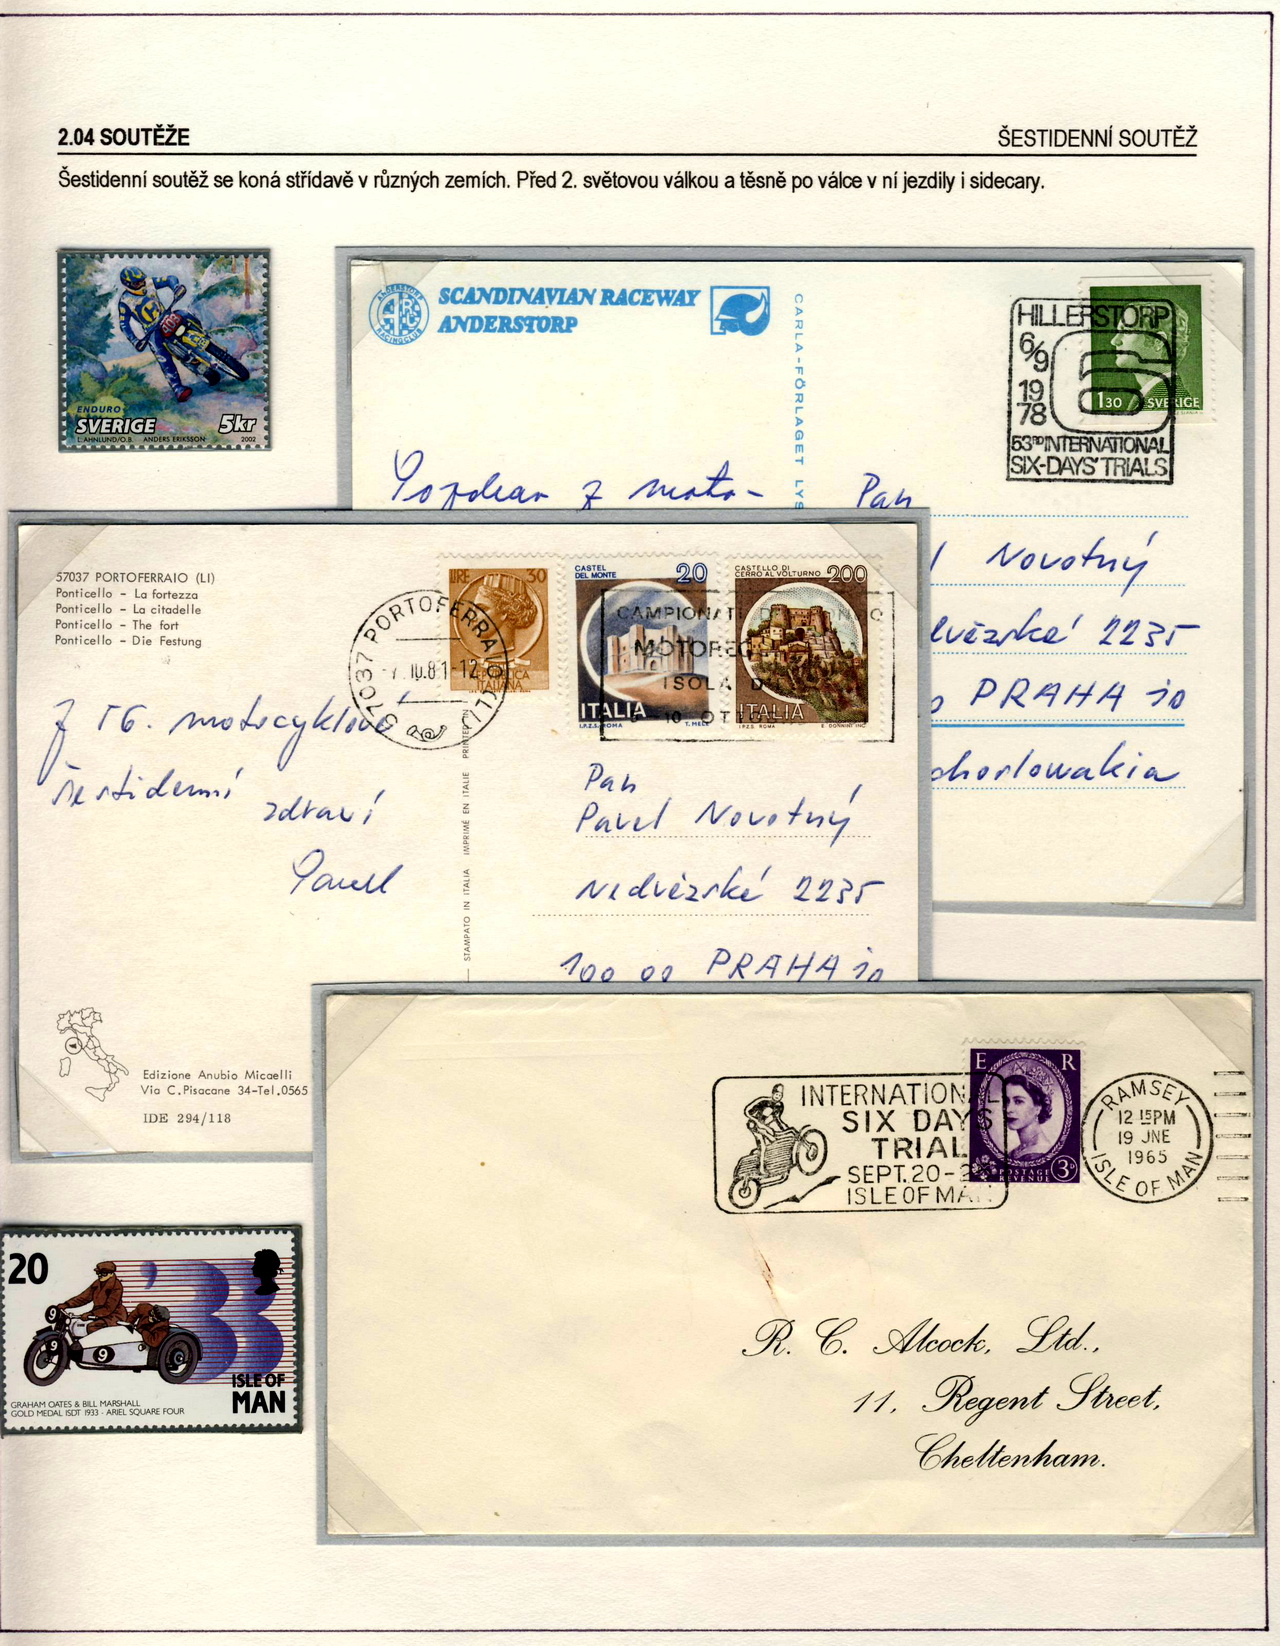 2.04 SOUTĚŽE
ŠESTIDENNÍ SOUTĚŽ
Šestidenní soutěž se koná střídavě v různých zemích. Před 2. světovou válkou a těsně po válce v ní jezdily i sidecary.
ENDURO
SVERIGE 5kr
L. AHNLUND/O.B. ANDERS ERIKSSON 2002
SCANDINAVIAN RACEWAY
ANDERSTORP
CARLA-FÖRLAGET LYS
HILLERSTORP
6/9
19
78
6
53RD INTERNATIONAL
SIX-DAYS' TRIALS
130 SVERIGE
Pozdrav z moto-
Pan
Novotný
2235
PRAHA 10
choslowakia
57037 PORTOFERRAIO (LI)
Ponticello - La fortezza
Ponticello - La citadelle
Ponticello - The fort
Ponticello - Die Festung
LIRE 30
REPUBBLICA
ITALIANA
57037 PORTOFERRAIO (LI)
-7.10.81-12
CASTEL
DEL MONTE 20
ITALIA
I.P.Z.S. ROMA T. MELE
CASTELLO DI
CERRO AL VOLTURNO 200
ITALIA
I.P.Z.S. ROMA E. DONNINI INC.
CAMPIONAT
MOTOREG
ISOLA D
10 OTTO
Z 56. motocyklové
šestidenní
zdraví
Pavel
STAMPATO IN ITALIA IMPRIMÉ EN ITALIE PRINTED IN
Pan
Pavel Novotný
Nedvězská 2235
100 00 PRAHA 10
Edizione Anubio Micaelli
Via C.Pisacane 34-Tel.0565
IDE 294/118
INTERNATIONAL
SIX DAYS
TRIAL
SEPT. 20-2
ISLE OF MAN
E R
POSTAGE
REVENUE 3D
RAMSEY
12 15PM
19 JNE
1965
ISLE OF MAN
R. C. Alcock, Ltd.,
11, Regent Street,
Cheltenham.
20
'33
9
9
9
ISLE OF
MAN
GRAHAM OATES & BILL MARSHALL
GOLD MEDAL ISDT 1933 - ARIEL SQUARE FOUR